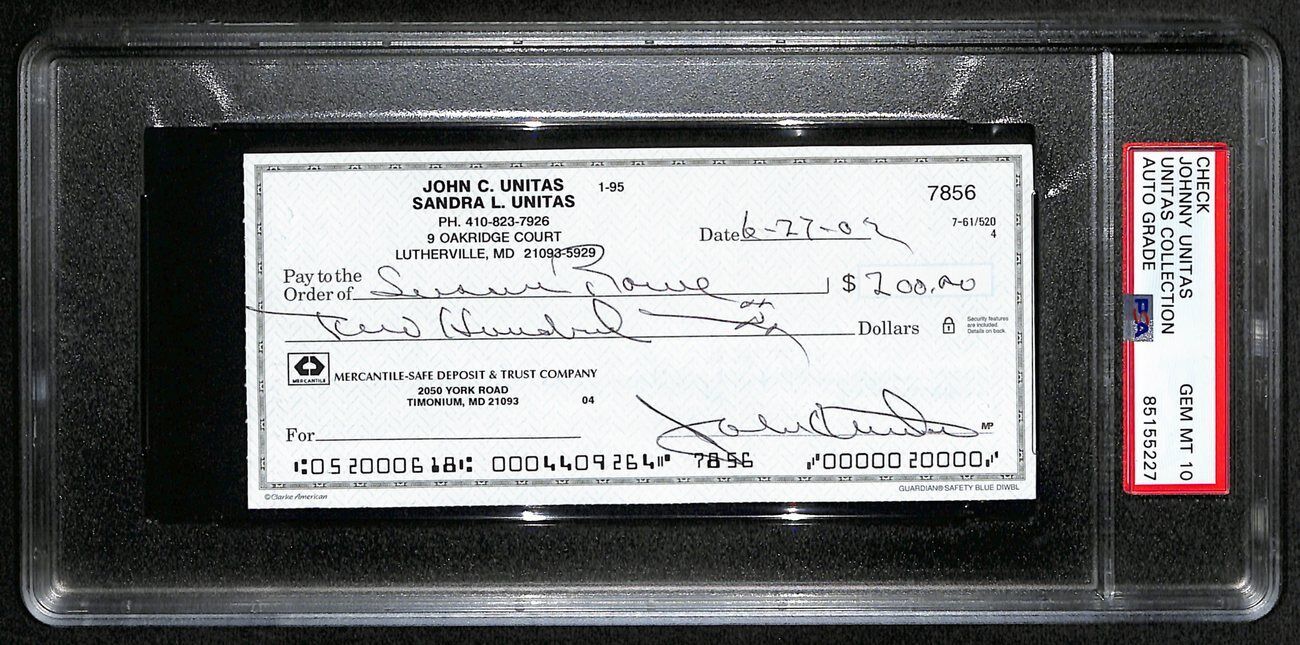 JOHN C. UNITAS 1-95
SANDRA L. UNITAS
PH. 410-823-7926
9 OAKRIDGE COURT
LUTHERVILLE, MD 21093-5929
7856
Date 6-27-02
7-61/520
4
Pay to the
Order of Susan Rowe $ 200.00
Two Hundred Dollars
Security features
are included.
Details on back.
MERCANTILE
MERCANTILE-SAFE DEPOSIT & TRUST COMPANY
2050 YORK ROAD
TIMONIUM, MD 21093 04
For
John Unitas MP
⑆052000618⑆ 0004409264⑈ 7856 ⑇0000020000⑇
©Clarke American
GUARDIAN® SAFETY BLUE DIWBL
CHECK
JOHNNY UNITAS
UNITAS COLLECTION
AUTO GRADE
PSA
GEM MT 10
85155227